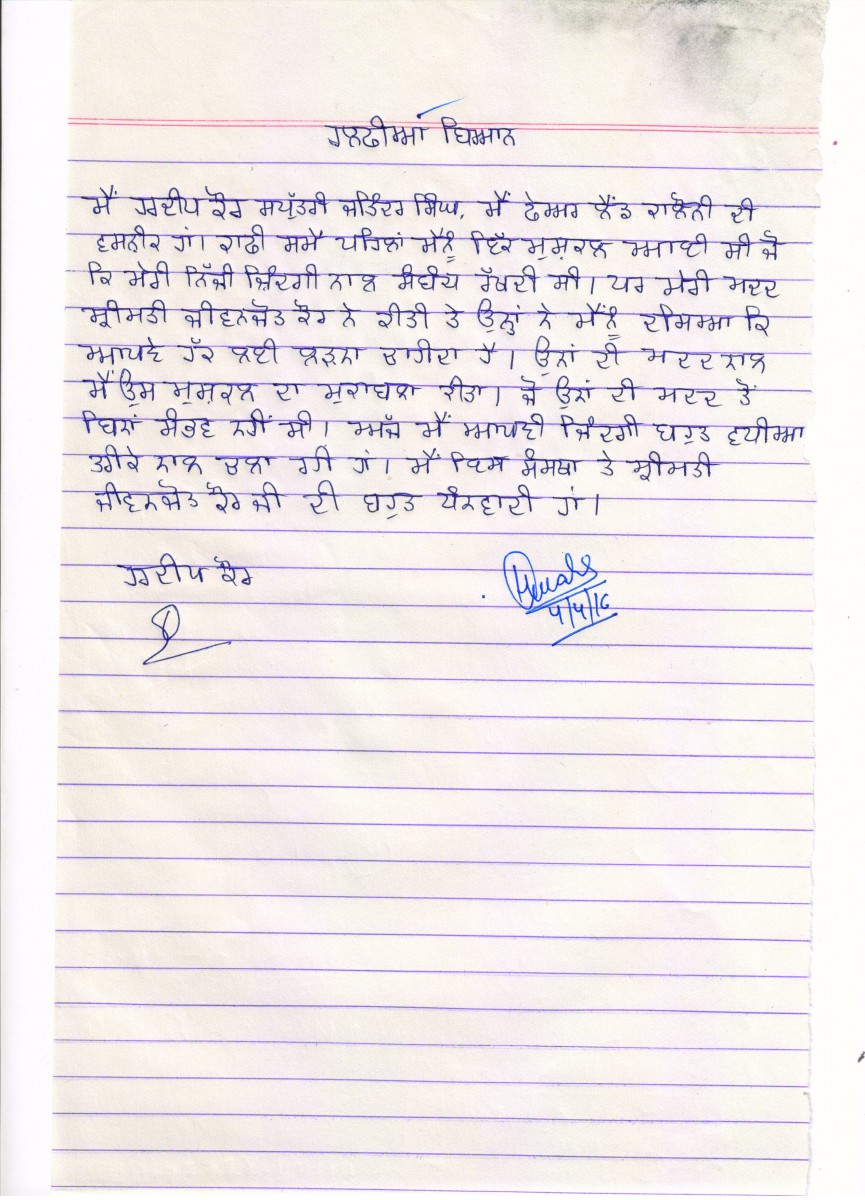 ਹਲਫੀਆ ਬਿਆਨ
ਮੈਂ ਹਰਦੀਪ ਕੌਰ ਸਪੁੱਤਰੀ ਜਤਿੰਦਰ ਸਿੰਘ, ਮੈਂ ਫੇਅਰ ਲੈਂਡ ਕਾਲੋਨੀ ਦੀ
ਵਸਨੀਕ ਹਾਂ। ਕਾਫੀ ਸਮੇਂ ਪਹਿਲਾਂ ਮੈਂਨੂੰ ਇੱਕ ਮੁਸ਼ਕਲ ਆਈ ਸੀ ਜੋ
ਕਿ ਮੇਰੀ ਨਿੱਜੀ ਜ਼ਿੰਦਗੀ ਨਾਲ ਸੰਬੰਧ ਰੱਖਦੀ ਸੀ। ਪਰ ਮੇਰੀ ਮਦਦ
ਸ੍ਰੀਮਤੀ ਜੀਵਨਜੋਤ ਕੌਰ ਨੇ ਕੀਤੀ ਤੇ ਉਨ੍ਹਾਂ ਨੇ ਮੈਂਨੂੰ ਦੱਸਿਆ ਕਿ
ਆਪਣੇ ਹੱਕ ਲਈ ਲੜਨਾ ਚਾਹੀਦਾ ਹੈ। ਉਨਾਂ ਦੀ ਮਦਦ ਨਾਲ
ਮੈਂ ਉਸ ਮੁਸ਼ਕਲ ਦਾ ਮੁਕਾਬਲਾ ਕੀਤਾ। ਜੋ ਉਨਾਂ ਦੀ ਮਦਦ ਤੋਂ
ਬਿਨਾਂ ਸੰਭਵ ਨਹੀਂ ਸੀ। ਅੱਜ ਮੈਂ ਆਪਣੀ ਜਿੰਦਗੀ ਬਹੁਤ ਵਧੀਆ
ਤਰੀਕੇ ਨਾਲ ਚਲਾ ਰਹੀ ਹਾਂ। ਮੈਂ ਇਸ ਸੰਸਥਾ ਤੇ ਸ੍ਰੀਮਤੀ
ਜੀਵਨਜੋਤ ਕੌਰ ਜੀ ਦੀ ਬਹੁਤ ਧੰਨਵਾਦੀ ਹਾਂ।
ਹਰਦੀਪ ਕੌਰ
4/4/16